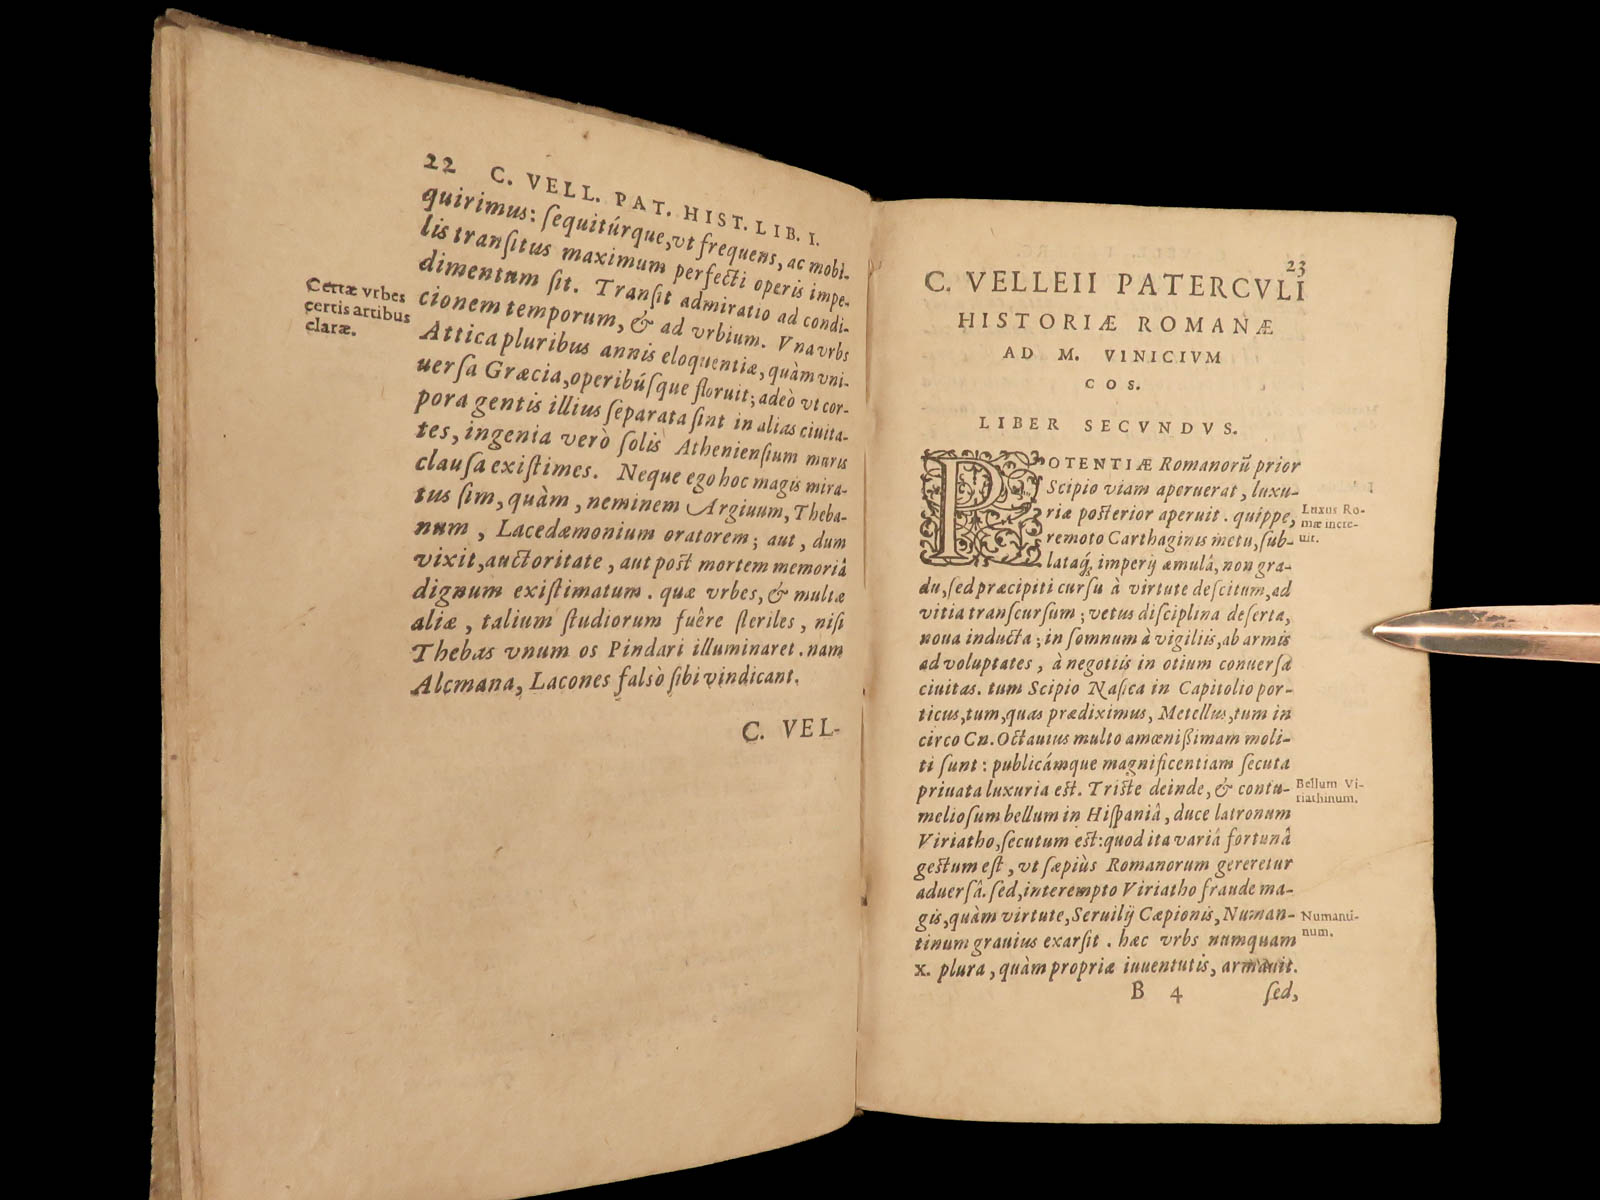 22 C. VELL. PAT. HIST. LIB. I.
quirimus: ſequitúrque, vt frequens, ac mobi-
lis tranſitus maximum perfecti operis impe-
dimentum ſit. Tranſit admiratio ad condi-
cionem temporum, & ad vrbium. Vna vrbs
Attica pluribus annis eloquentiæ, quàm vni-
uerſa Græcia, operibúſque floruit; adeò vt cor-
pora gentis illius ſeparata ſint in alias ciuita-
tes, ingenia verò ſolis Athenienſium muris
clauſa exiſtimes. Neque ego hoc magis mira-
tus ſim, quàm, neminem Argiuum, Theba-
num, Lacedæmonium oratorem; aut, dum
vixit, auctoritate, aut poſt mortem memoriâ
dignum exiſtimatum. quæ vrbes, & multæ
aliæ, talium ſtudiorum fuêre ſteriles, niſi
Thebas vnum os Pindari illuminaret. nam
Alcmana, Lacones falsò ſibi vindicant.
C. VEL-
Certæ vrbes
certis artibus
claræ.
23
C. VELLEII PATERCVLI
HISTORIÆ ROMANÆ
AD M. VINICIVM
COS.
LIBER SECVNDVS.
POTENTIÆ Romanorũ prior
Scipio viam aperuerat, luxu-
riæ poſterior aperuit. quippe,
remoto Carthaginis metu, ſub-
lataq́; imperij æmulâ, non gra-
du, ſed præcipiti curſu à virtute deſcitum, ad
vitia tranſcurſum; vetus diſciplina deſerta,
noua inducta; in ſomnum à vigiliis, ab armis
ad voluptates, à negotiis in otium conuerſa
ciuitas. tum Scipio Naſica in Capitolio por-
ticus, tum, quas prædiximus, Metellus, tum in
circo Cn. Octauius multo amœniſſimam moli-
ti ſunt: publicámque magnificentiam ſecuta
priuata luxuria eſt. Triſte deinde, & contu-
melioſum bellum in Hiſpaniâ, duce latronum
Viriatho, ſecutum eſt: quod ita variâ fortunâ
geſtum eſt, vt ſæpiùs Romanorum gereretur
aduerſâ. ſed, interempto Viriatho fraude ma-
gis, quàm virtute, Seruilij Cæpionis, Numan-
tinum grauius exarſit. hæc vrbs numquam
X. plura, quàm propriæ iuuentutis, armauit.
B 4 ſed,
Luxus Ro-
mæ incre-
uit.
Bellum Vi-
riathinum.
Numanti-
num.